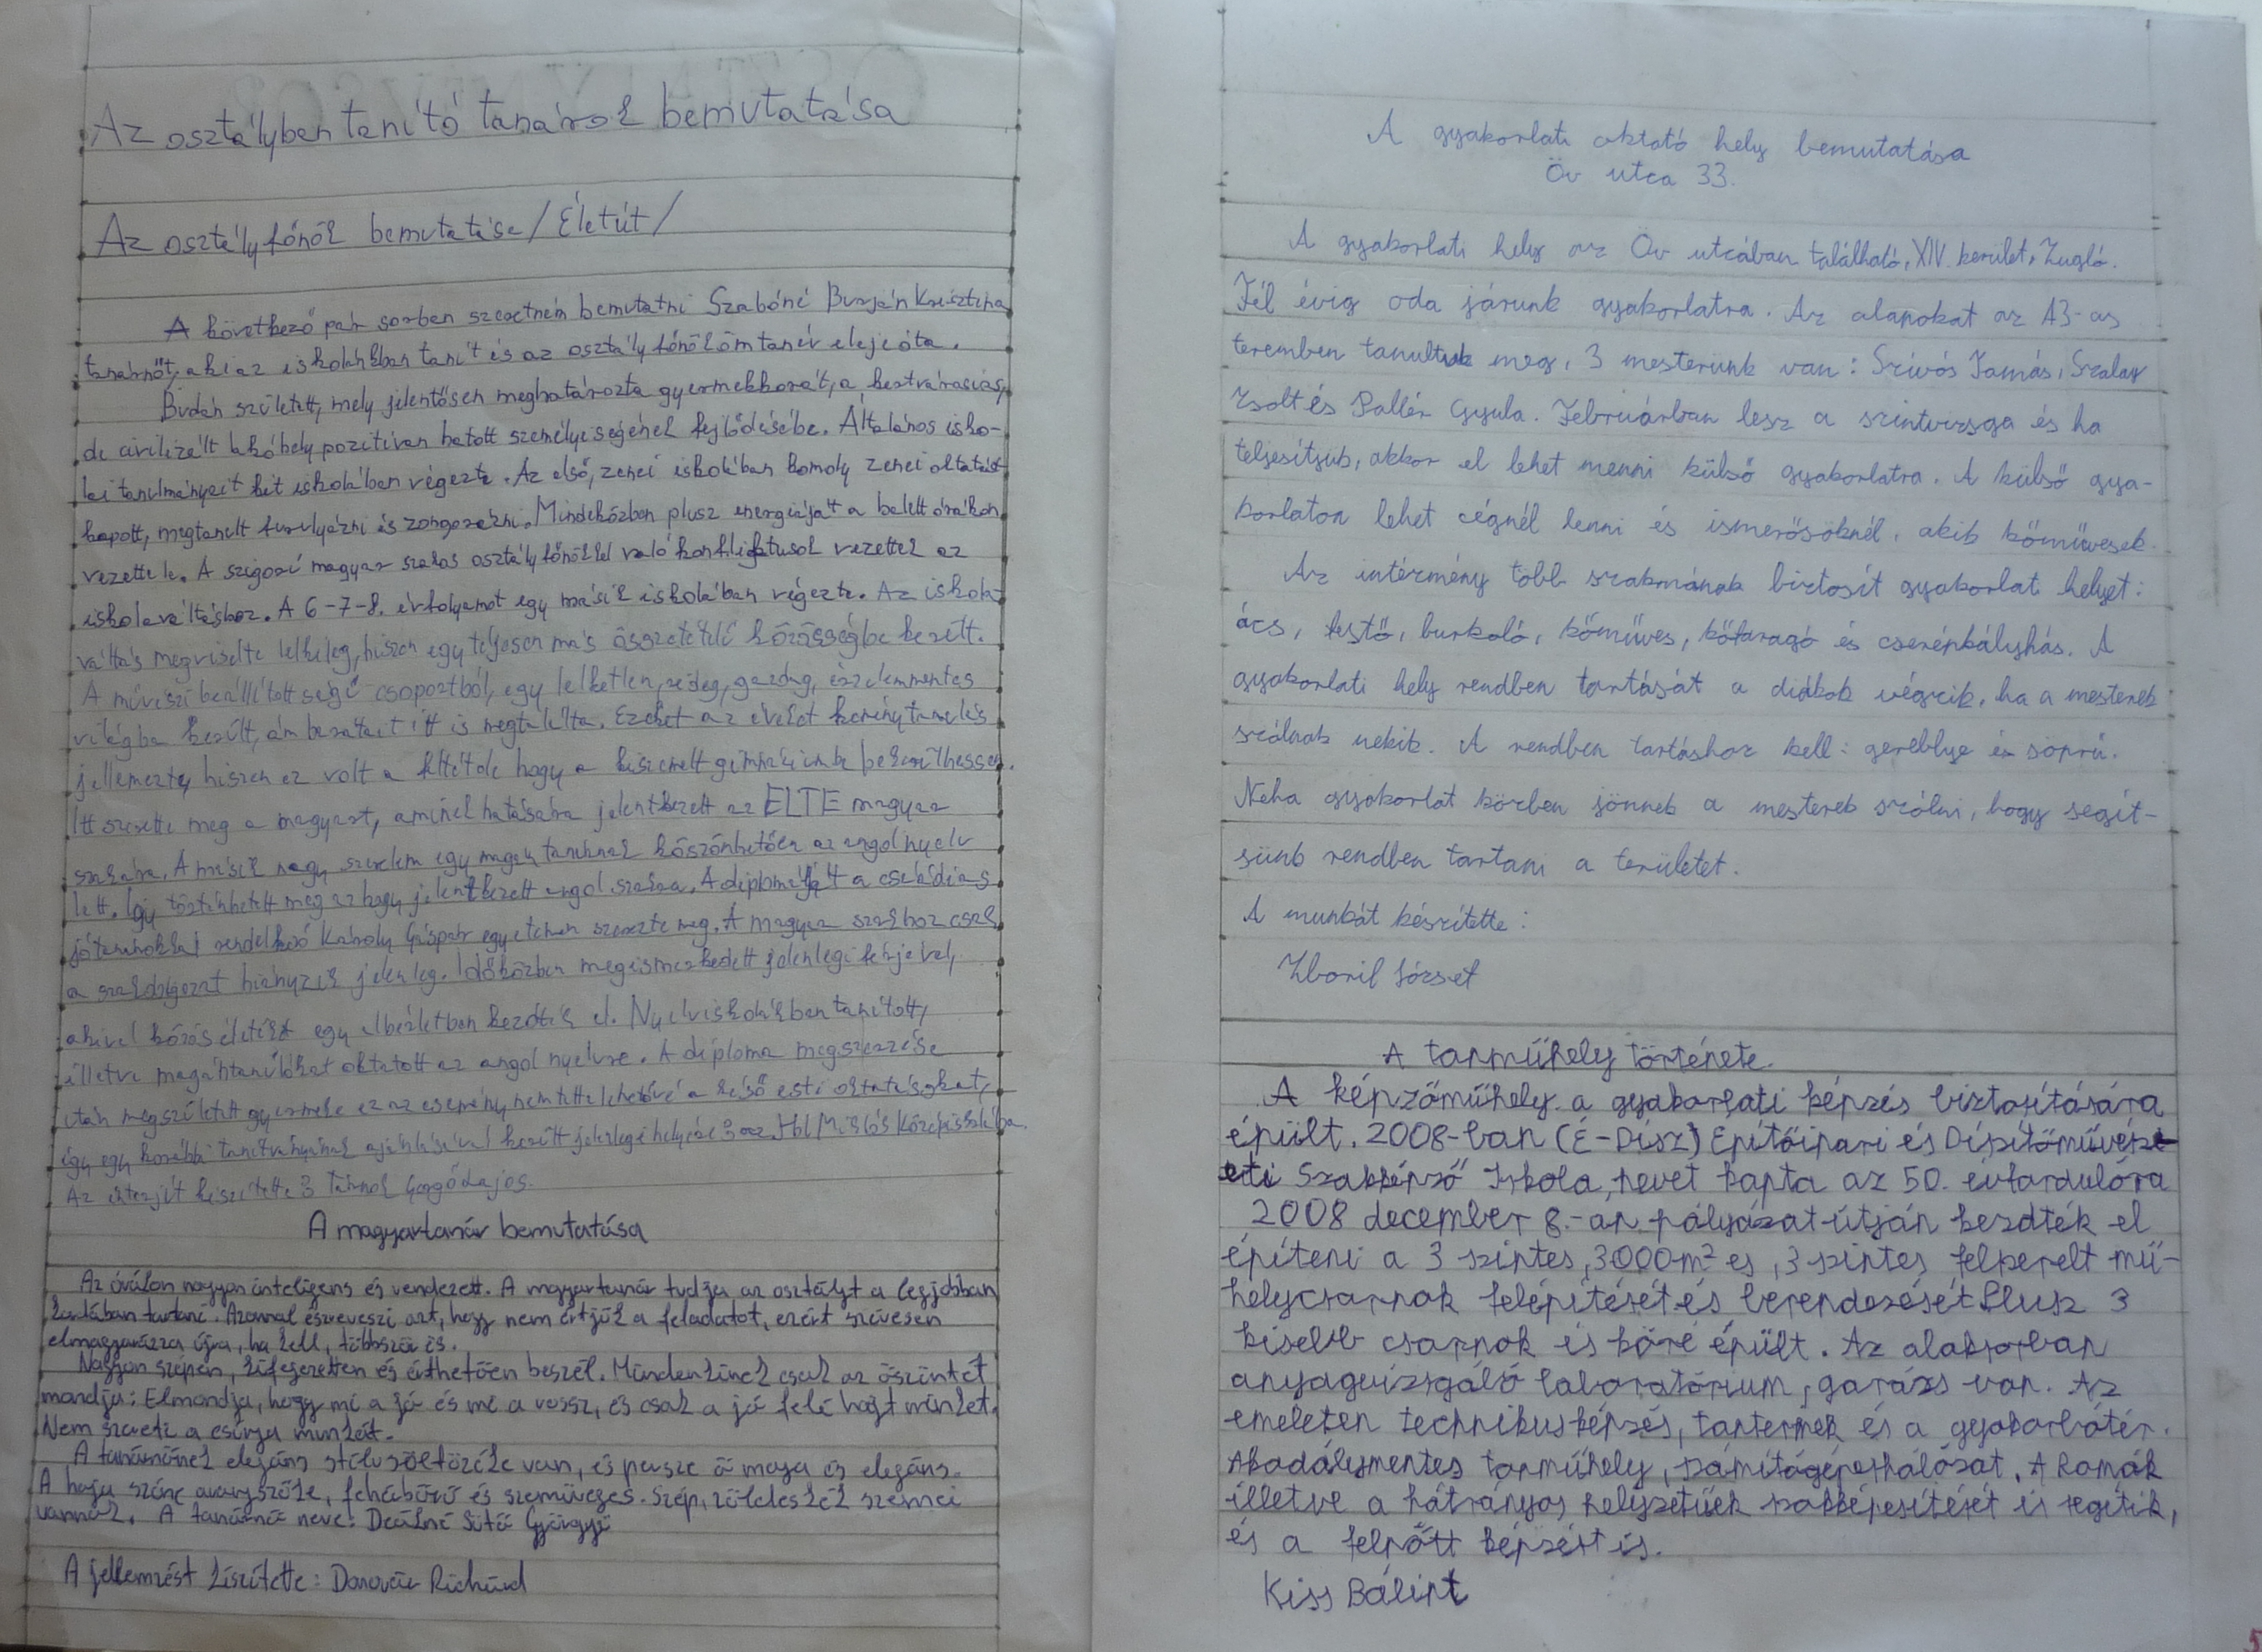 Az osztályban tanító tanárok bemutatása
Az osztályfőnök bemutatása /Életút/
A következő pár sorban szeretném bemutatni Szabóné Burján Krisztina
tanárnőt, aki az iskolánkban tanít és az osztályfőnököm tanév eleje óta.
Budán született, mely jelentősen meghatározta gyermekkorát, a kertvárosias,
de civilizált lakóhely pozitívan hatott személyiségének fejlődésébe. Általános isko-
lai tanulmányait két iskolában végezte. Az első, zenei iskolában komoly zenei oktatást
kapott, megtanult furulyázni és zongorázni. Mindeközben plusz energiáját a balett órákon
vezette le. A szigorú magyar szakos osztályfőnökkel való konfliktusok vezettek az
iskolaváltáshoz. A 6-7-8. évfolyamot egy másik iskolában végezte. Az iskola-
váltás megviselte lelkileg, hiszen egy teljesen más összetételű közösségbe került.
A művészi beállítottságú csoportból, egy lelketlen, rideg, gazdag, érzelemmentes
világba került, ám barátait itt is megtalálta. Ezeket az éveket kemény tanulás
jellemezte, hiszen ez volt a feltétele hogy a kiszemelt gimnáziumba bekerülhessen.
Itt szerette meg a magyart, aminek hatására jelentkezett az ELTE magyar
szakára. A másik nagy szerelem egy magán tanárnak köszönhetően az angol nyelv
lett. Így történhetett meg az hogy jelentkezett angol szakra. A diplomáját a családias
rendelkező Károly Gáspár egyetemen szerezte meg. A magyar szakhoz csak
a szakdolgozat hiányzik jelenleg. Időközben megismerkedett jelenlegi férjével,
akivel közös életüket egy albérletben kezdték el. Nyelviskolákban tanított,
illetve magántanulókat oktatott az angol nyelvre. A diploma megszerzése
után megszületett gyermeke ez az esemény nem tette lehetővé a késő esti oktatásokat,
így egy korábbi tanítványának ajánlásával került jelenlegi helyére az Ybl Miklós Középiskolába.
Az interjút készítette:
A magyartanár bemutatása
Az órákon nagyon inteligens és rendezett. A magyartanár tudja az osztályt a legjobban
kordában tartani. Azonnal észreveszi azt, hogy nem értjük a feladatot, ezért szívesen
elmagyarázza újra, ha kell, többször is.
Nagyon szépen, kifejezetten és érthetően beszél. Mindenkinek csak az őszintét
mondja: Elmondja, hogy mi a jó és mi a rossz, és csak a jó felé hajt minket.
Nem szereti a csúnya munkát.
A tanárnőnek elegáns stílusöltözéke van, és persze ő maga is elegáns.
A haja színe aranyszőke, fehérbőrű és szemüveges. Szép, zöldeskék szemei
vannak. A tanárnő neve: Deákné Sütő Gyöngyi
A jellemzést készítette: Donovár Richárd
A gyakorlati oktató hely bemutatása
Öv utca 33.
A gyakorlati hely az Öv utcában található, XIV. kerület, Zugló.
Fél évig oda járunk gyakorlatra. Az alapokat az A3-as
teremben tanultuk meg, 3 mesterünk van: Szívós Tamás, Szalay
Zsolt és Pallér Gyula. Februárban lesz a szintvizsga és ha
teljesítjük, akkor el lehet menni külső gyakorlatra. A külső gya-
korlaton lehet cégnél lenni és ismerősöknél, akik kőművesek.
Az intérmény több szakmának biztosít gyakorlat helyet:
ács, festő, burkoló, kőműves, kőfaragó és cserépkályhás. A
gyakorlati hely rendben tartását a diákok végzik, ha a mesterek
szólnak nekik. A rendben tartáshoz kell: gereblye és söprű.
Néha gyakorlat közben jönnek a mesterek szólni, hogy segít-
sünk rendben tartani a területet.
A munkát készítette:
Zboril József
A tanműhely története.
A képzőműhely a gyakorlati képzés biztosítására
épült. 2008-ban (É-Dísz) Építőipari és Díszítőművész-
eti Szakképző Iskola, nevet kapta az 50. évfordulóra
2008 december 8.-án pályázat útján kezdték el
építeni a 3 szintes, 3000m² es, 3 szintes felszerelt mű-
helycsarnok felépítését és berendezését. Plusz 3
kisebb csarnok is köré épült. Az alaksorban
anyagvizsgáló laboratórium, garázs van. Az
emeleten technikusképzés, tantermek és a gyakorlótér.
Akadálymentes tanműhely, számítógépeshálózat. A Romák
illetve a hátrányos helyzetűek szakképesítését is segítik,
és a felnőtt képzést is.
Kiss Bálint